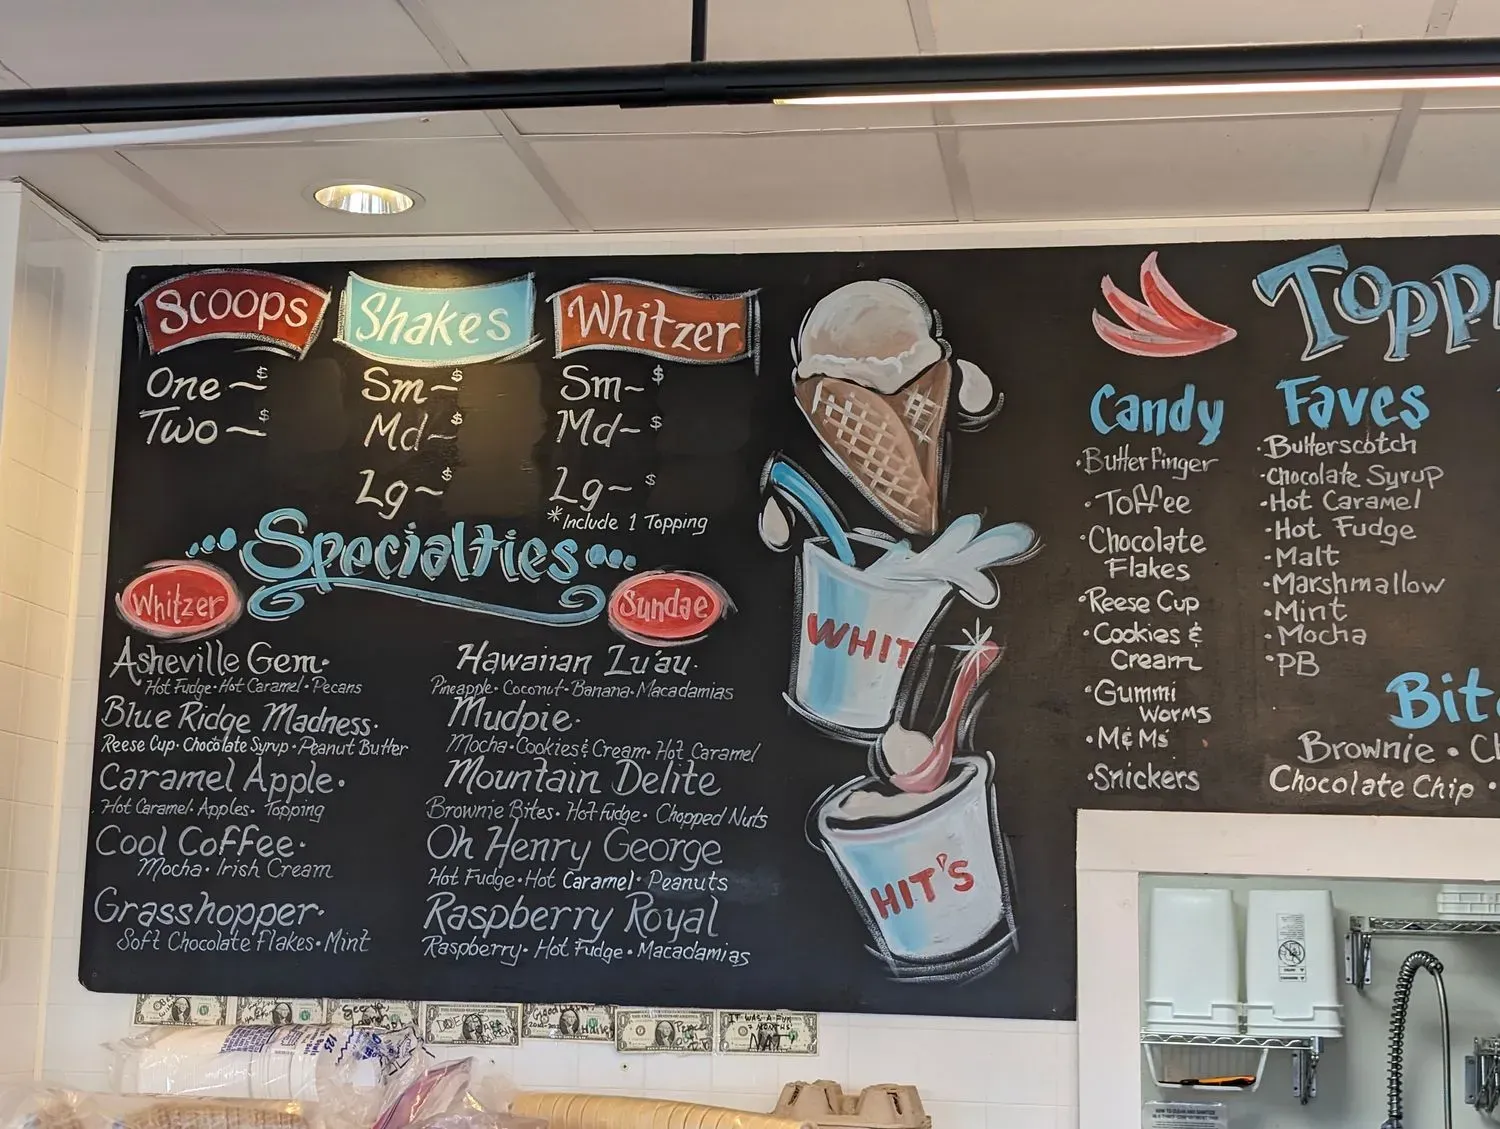 Scoops
One ~ $
Two ~ $
Shakes
Sm ~ $
Md ~ $
Lg ~ $
Whitzer
Sm ~ $
Md ~ $
Lg ~ $
*Include 1 Topping
...Specialties...
Whitzer
Asheville Gem·
Hot Fudge·Hot Caramel·Pecans
Blue Ridge Madness·
Reese Cup·Chocolate Syrup·Peanut Butter
Caramel Apple·
Hot Caramel·Apples·Topping
Cool Coffee·
Mocha·Irish Cream
Grasshopper·
Soft Chocolate Flakes·Mint
Sundae
Hawaiian Lu'au·
Pineapple·Coconut·Banana·Macadamias
Mudpie·
Mocha·Cookies & Cream·Hot Caramel
Mountain Delite
Brownie Bites·Hot Fudge·Chopped Nuts
Oh Henry George
Hot Fudge·Hot Caramel·Peanuts
Raspberry Royal
Raspberry·Hot Fudge·Macadamias
WHIT
HIT'S
Topp
Candy
·Butterfinger
·Toffee
·Chocolate
Flakes
·Reese Cup
·Cookies &
Cream
·Gummi
Worms
·M&Ms
·Snickers
Faves
·Butterscotch
·Chocolate Syrup
·Hot Caramel
·Hot Fudge
·Malt
·Marshmallow
·Mint
·Mocha
·PB
Bit
Brownie · Ch
Chocolate Chip ·
IT WAS A FUN
2 MONTHS
NAT